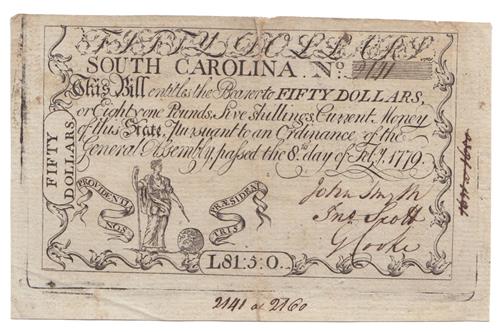 FIFTY DOLLARS
SOUTH CAROLINA. No.
This Bill entitles the Bearer to FIFTY DOLLARS,
or Eighty one Pounds, five Shillings, Current Money
of this State, Pursuant to an Ordinance of the
General Assembly, passed the 8th day of Feby. 1779.
FIFTY DOLLARS
PROVIDENTIA NOS
PRÆSIDEAT TRIS
John Smyth
Jno. Scott
G Cooke
L81:5:0.
2141 a 2160